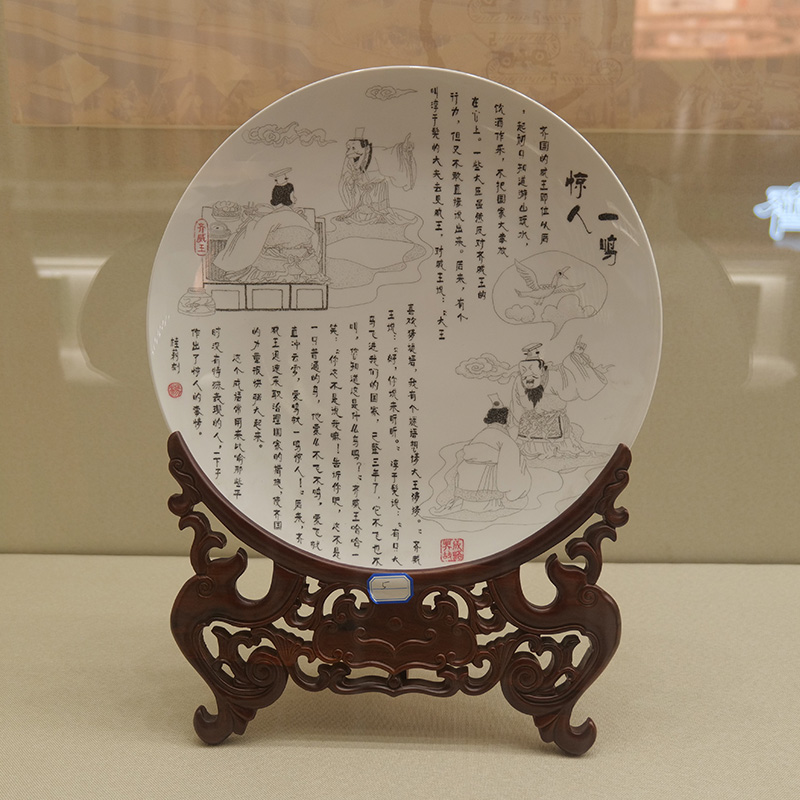 一鸣
惊人
齐国的威王即位以后
，起初只知道游山玩水，
饮酒作乐，不把国家大事放
在心上。一些大臣虽然反对齐威王的
行为，但又不敢直接说出来。后来，有个
叫淳于髡的大夫去见威王，对威王说：“大王
喜欢猜谜语，我有个谜语想请大王猜猜。”齐威
王说：“好，你说来听听。”淳于髡说：“有只大
鸟飞进我们的国家，已整三年了，它不飞也不
叫，你知道这是什么鸟吗？”齐威王哈哈一
笑：“你这不是说我嘛！告诉你吧，这不是
一只普通的鸟，他要么不飞不鸣，要飞就
直冲云霄，要鸣就一鸣惊人！”后来，齐
威王迅速采取治理国家的措施，使齐国
的力量很快强大起来。
这个成语常用来比喻那些平
时没有特殊表现的人，一下子
作出了惊人的事情。
齐威王
5